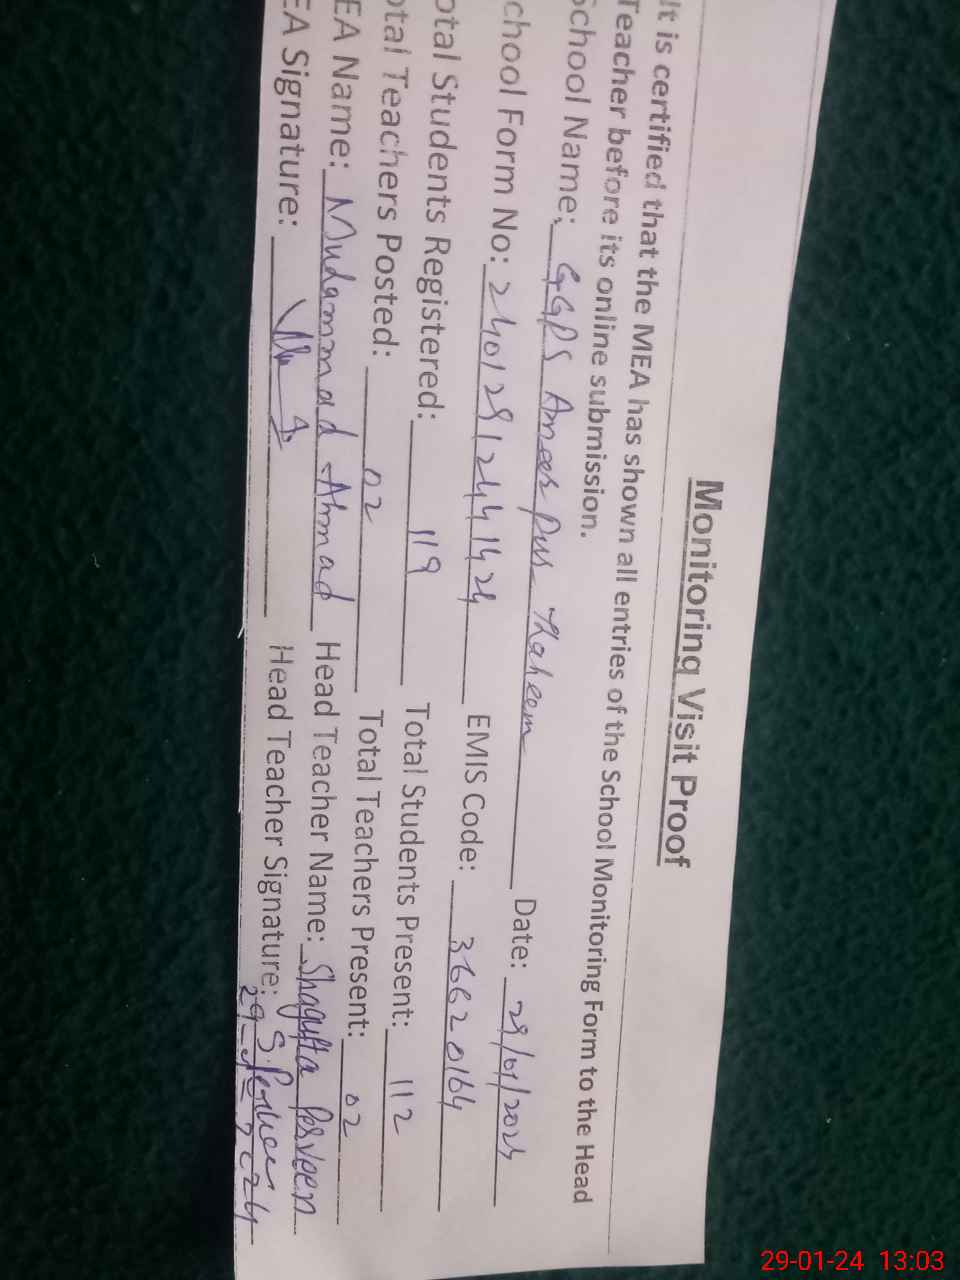 Monitoring Visit Proof
It is certified that the MEA has shown all entries of the School Monitoring Form to the Head
Teacher before its online submission.
School Name: GGPS Ameer Pur Thaheem Date: 29/01/2024
chool Form No: EMIS Code: 36620164
otal Students Registered: 119 Total Students Present: 112
otal Teachers Posted: 02 Total Teachers Present: 02
EA Name: Mudammad Ahmad Head Teacher Name: Shagufta Perveen
EA Signature: Head Teacher Signature: S.
29-01-24 13:03